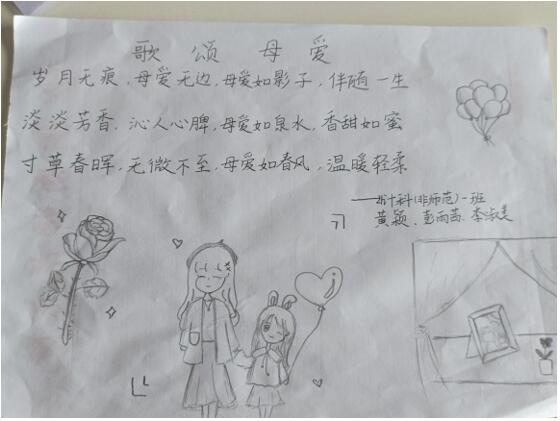 歌颂母爱
岁月无痕，母爱无边，母爱如影子，伴随一生
淡淡芳香，沁人心脾，母爱如泉水，香甜如蜜
寸草春晖，无微不至，母爱如春风，温暖轻柔
科(非师范)一班
黄颖、彭雨茜、李淑